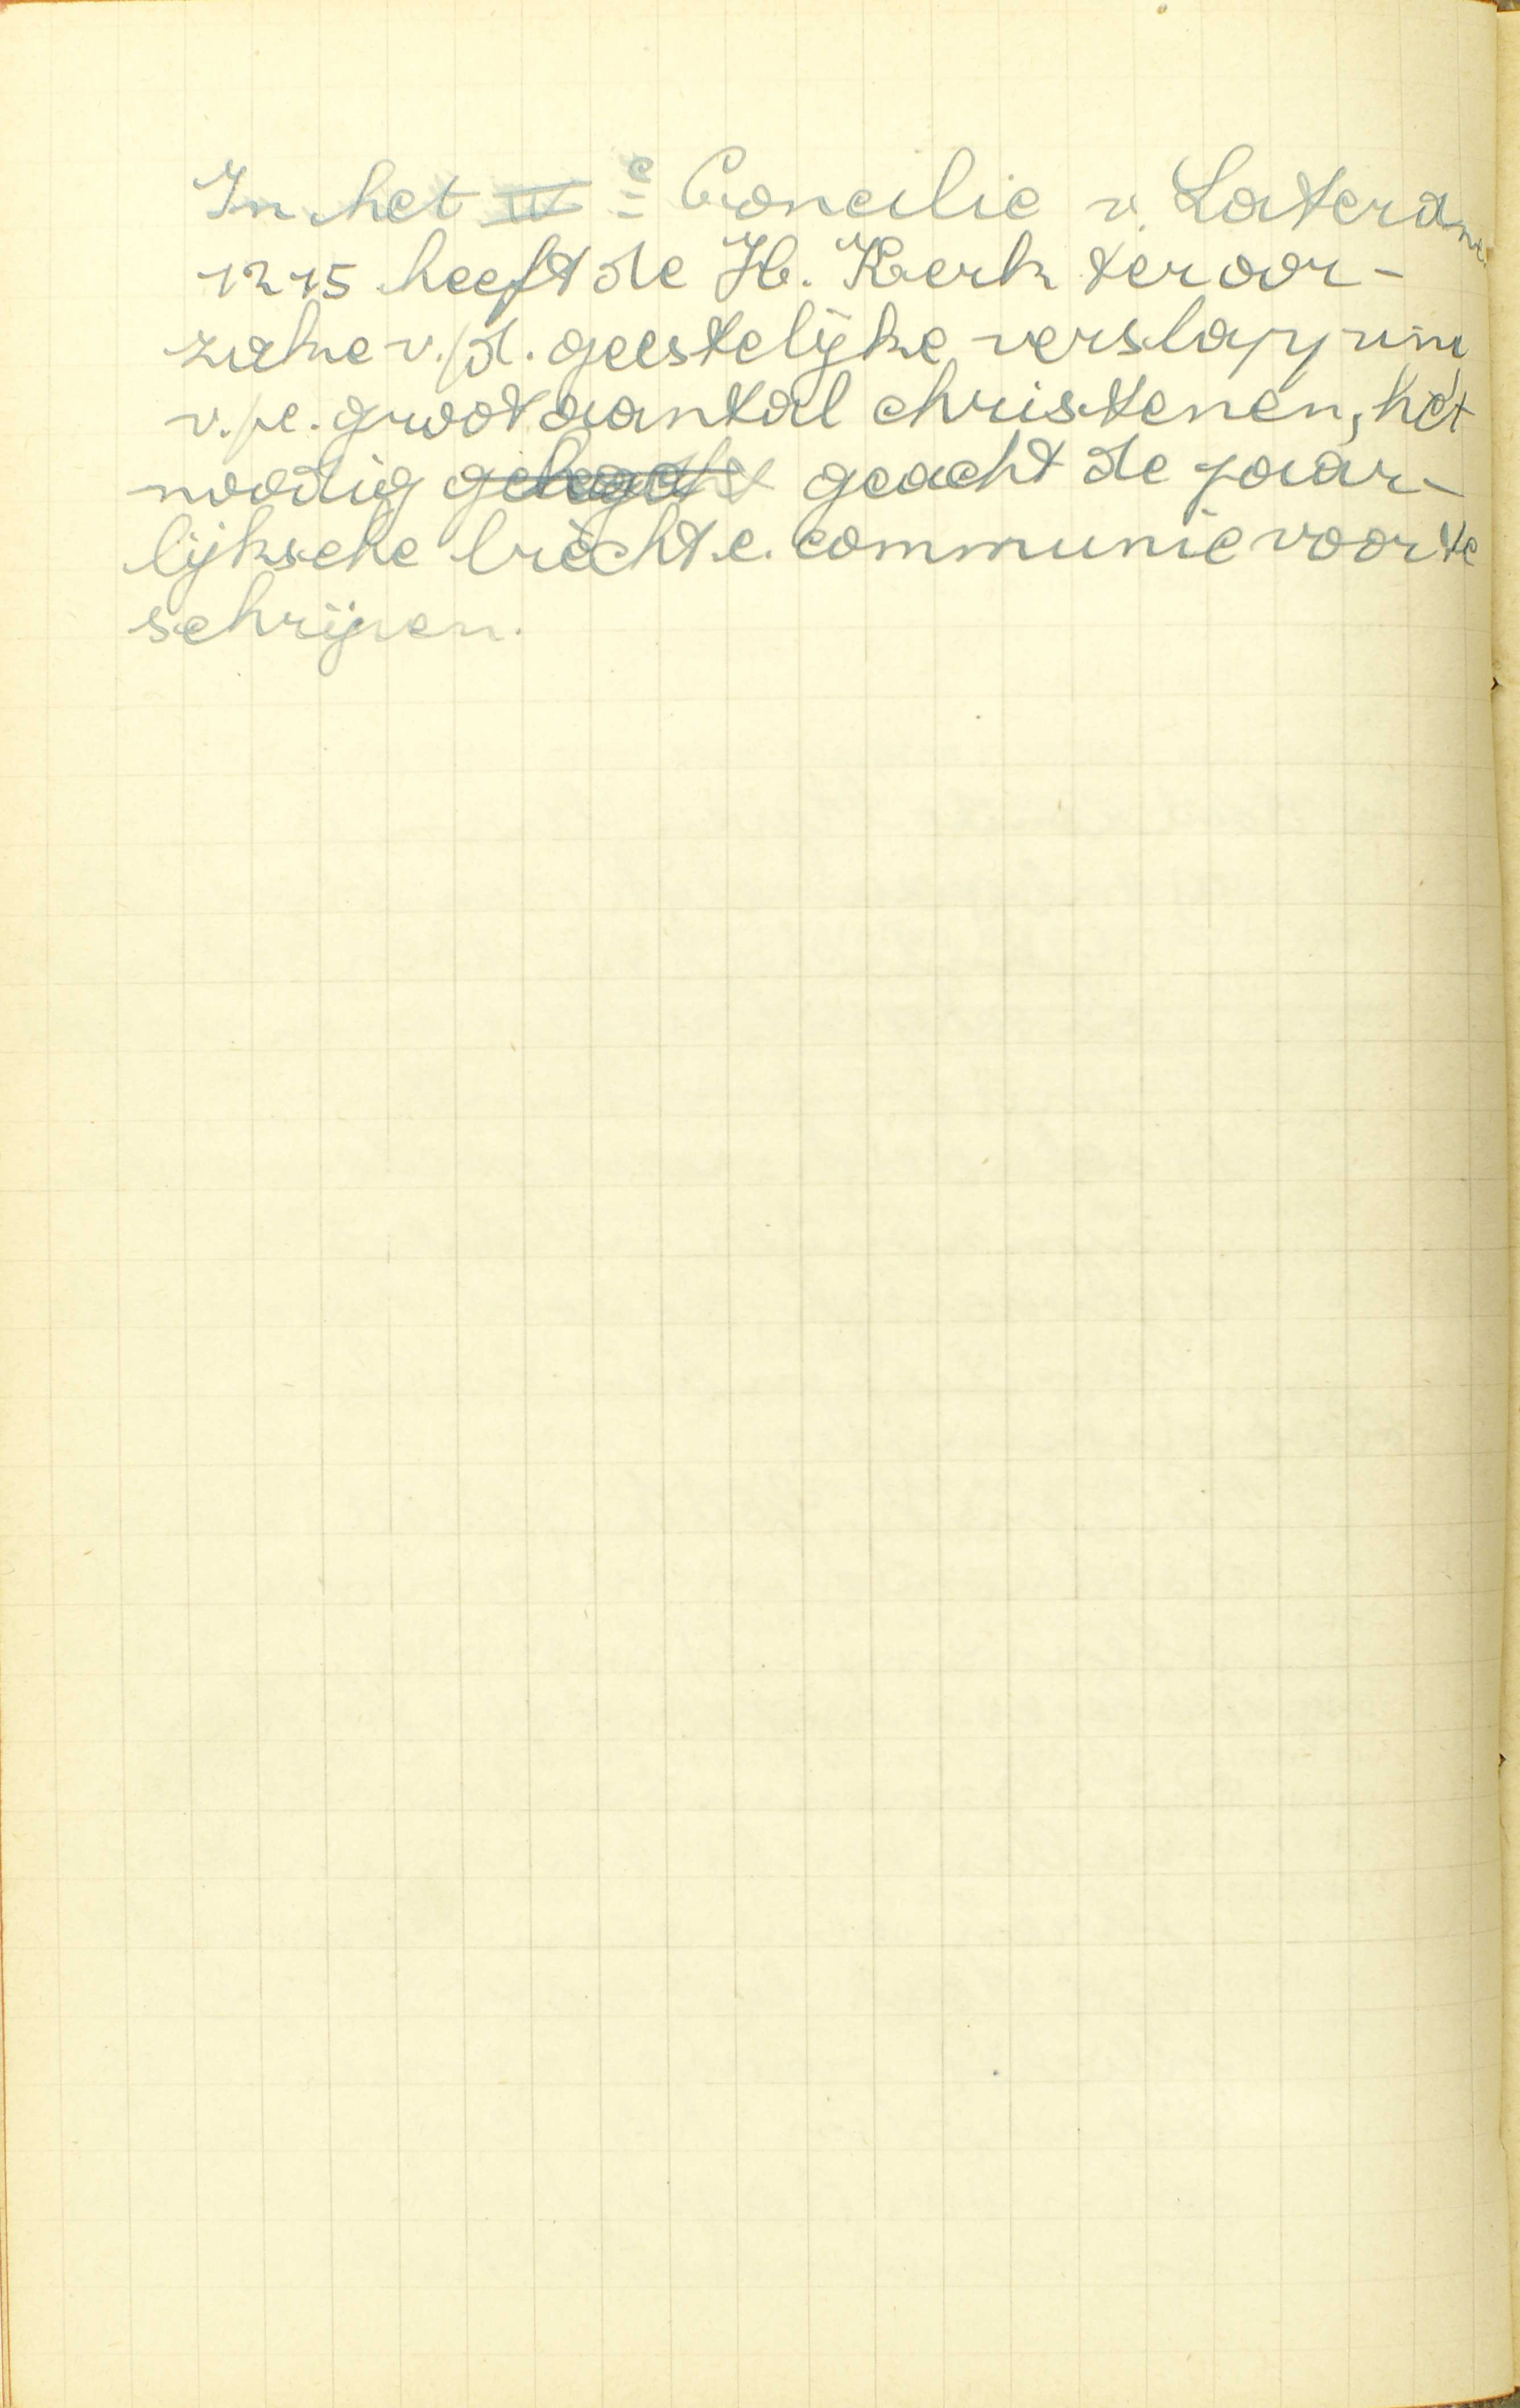 In het IVe Concilie v. Laterane.
1215 heeft de H. Kerk ter oor-
zake v./d. geestelijke verslapping
v./e. groot aantal christenen, het
noodig geacht de jaar-
lijksche biecht e. communie voor te
schrijven.